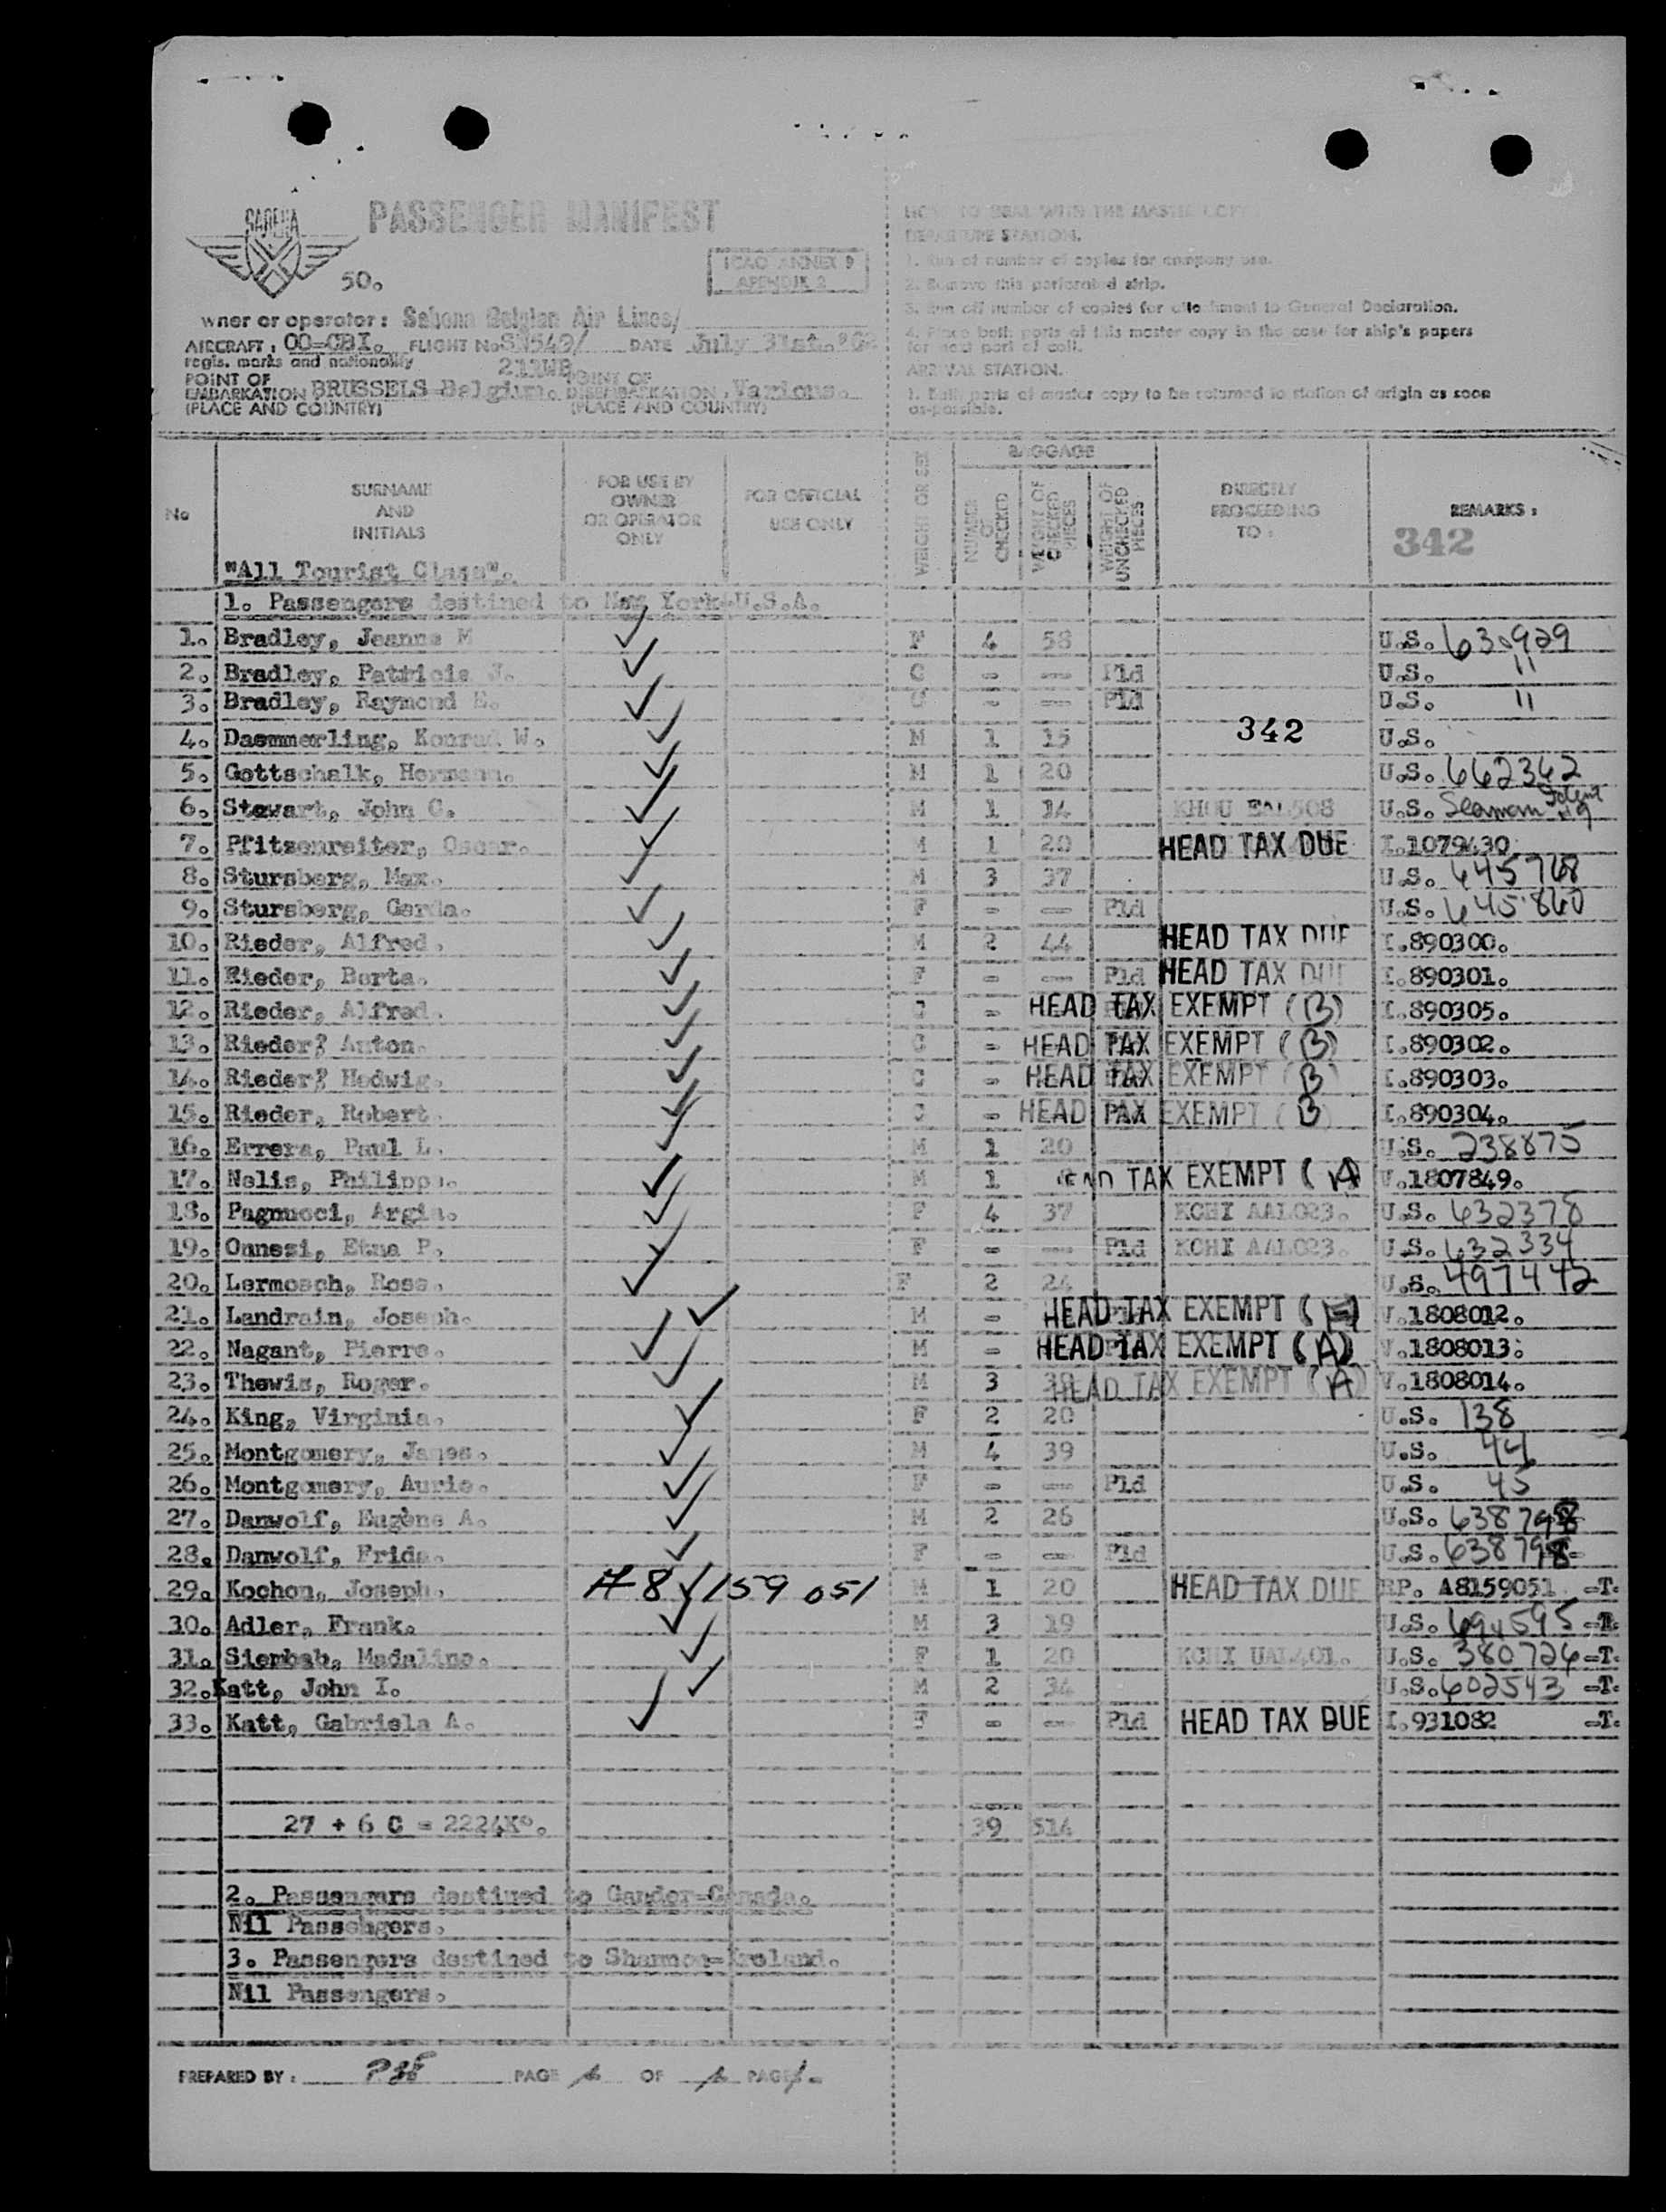 SABENA
PASSENGER MANIFEST
50.
ICAO ANNEX 9
APENDIX 2
wner or operator: Sabena Belgian Air Lines/
AIRCRAFT: OO-CBI. FLIGHT No SN549/ DATE July 31st.
regis. marks and nationality
POINT OF EMBARKATION BRUSSELS-Belgium. POINT OF DISEMBARKATION. Various.
(PLACE AND COUNTRY) (PLACE AND COUNTRY)
HOW TO DEAL WITH THE MASTER COPY
DEPARTURE STATION.
1. Run of number of copies for company use.
2. Remove this perforated strip.
3. Run off number of copies for attachment to General Declaration.
4. Place both parts of this master copy in the case for ship's papers
for next port of call.
ARRIVAL STATION.
1. Both parts of master copy to be returned to station of origin as soon
as-possible.
No
SURNAME AND INITIALS
FOR USE BY OWNER OR OPERATOR ONLY
FOR OFFICIAL USE ONLY
WEIGHT OR SEX
BAGGAGE
NUMBER OF CHECKED
WEIGHT OF CHECKED PIECES
WEIGHT OF UNCHECKED PIECES
DIRECTLY PROCEEDING TO:
REMARKS:
342
"All Tourist Class".
1. Passengers destined to New York-U.S.A.
1. Bradley, Jeanne M F 4 58 U.S. 630929
2. Bradley, Patricia J. C - -- Pld U.S. "
3. Bradley, Raymond E. C - -- Pld U.S. "
4. Daemmerling, Konrad W. M 1 15 342 U.S.
5. Gottschalk, Hermann. M 1 20 U.S. 662362
6. Stewart, John C. M 1 14 KHOU EAL508 U.S. Seaman
7. Pfitzenreiter, Oscar. M 1 20 HEAD TAX DUE I.1079430.
8. Stursberg, Max. M 3 37 U.S. 645768
9. Stursberg, Gerda. F - -- Pld U.S. 645860
10. Rieder, Alfred. M 2 44 HEAD TAX DUE I.890300.
11. Rieder, Berta. F - -- Pld HEAD TAX DUE I.890301.
12. Rieder, Alfred. C - HEAD TAX EXEMPT (B) I.890305.
13. Rieder, Anton. C - HEAD TAX EXEMPT (B) I.890302.
14. Rieder, Hedwig. C - HEAD TAX EXEMPT (B I.890303.
15. Rieder, Robert. C - HEAD TAX EXEMPT (B) I.890304.
16. Errera, Paul L. M 1 20 U.S. 238875
17. Nelis, Philippe. M 1 HEAD TAX EXEMPT (A V.1807849.
18. Pagnucci, Argia. F 4 37 KCHI AAL023. U.S. 632378
19. Onnesi, Etna P. F - -- Pld KCHI AAL023. U.S. 632334
20. Lermosch, Rose. F 2 24 U.S. 497442
21. Landrain, Joseph. M - HEAD TAX EXEMPT ( V.1808012.
22. Nagant, Pierre. M - HEAD TAX EXEMPT (A) V.1808013.
23. Thewis, Roger. M 3 HEAD TAX EXEMPT (A) V.1808014.
24. King, Virginia. F 2 20 U.S. 138
25. Montgomery, James. M 4 39 U.S. 44
26. Montgomery, Aurie. F - -- Pld U.S. 45
27. Danwolf, Eugène A. M 2 26 U.S. 638798
28. Danwolf, Frida. F - -- Pld U.S. 638798
29. Kochon, Joseph. A 8 159 051 M 1 20 HEAD TAX DUE RP. A8159051 -T.
30. Adler, Frank. M 3 19 U.S. 691595 -T.
31. Siembab, Madaline. F 1 20 KCHI UAL401. U.S. 380726 -T.
32. Katt, John I. M 2 34 U.S. 602543 -T.
33. Katt, Gabriela A. F - -- Pld HEAD TAX DUE I.931082 -T.
27 + 6 C = 2224K°. 39 514
2. Passengers destined to Gander-Canada.
Nil Passengers.
3. Passengers destined to Shannon-Ireland.
Nil Passengers.
PREPARED BY: PAGE OF PAGE